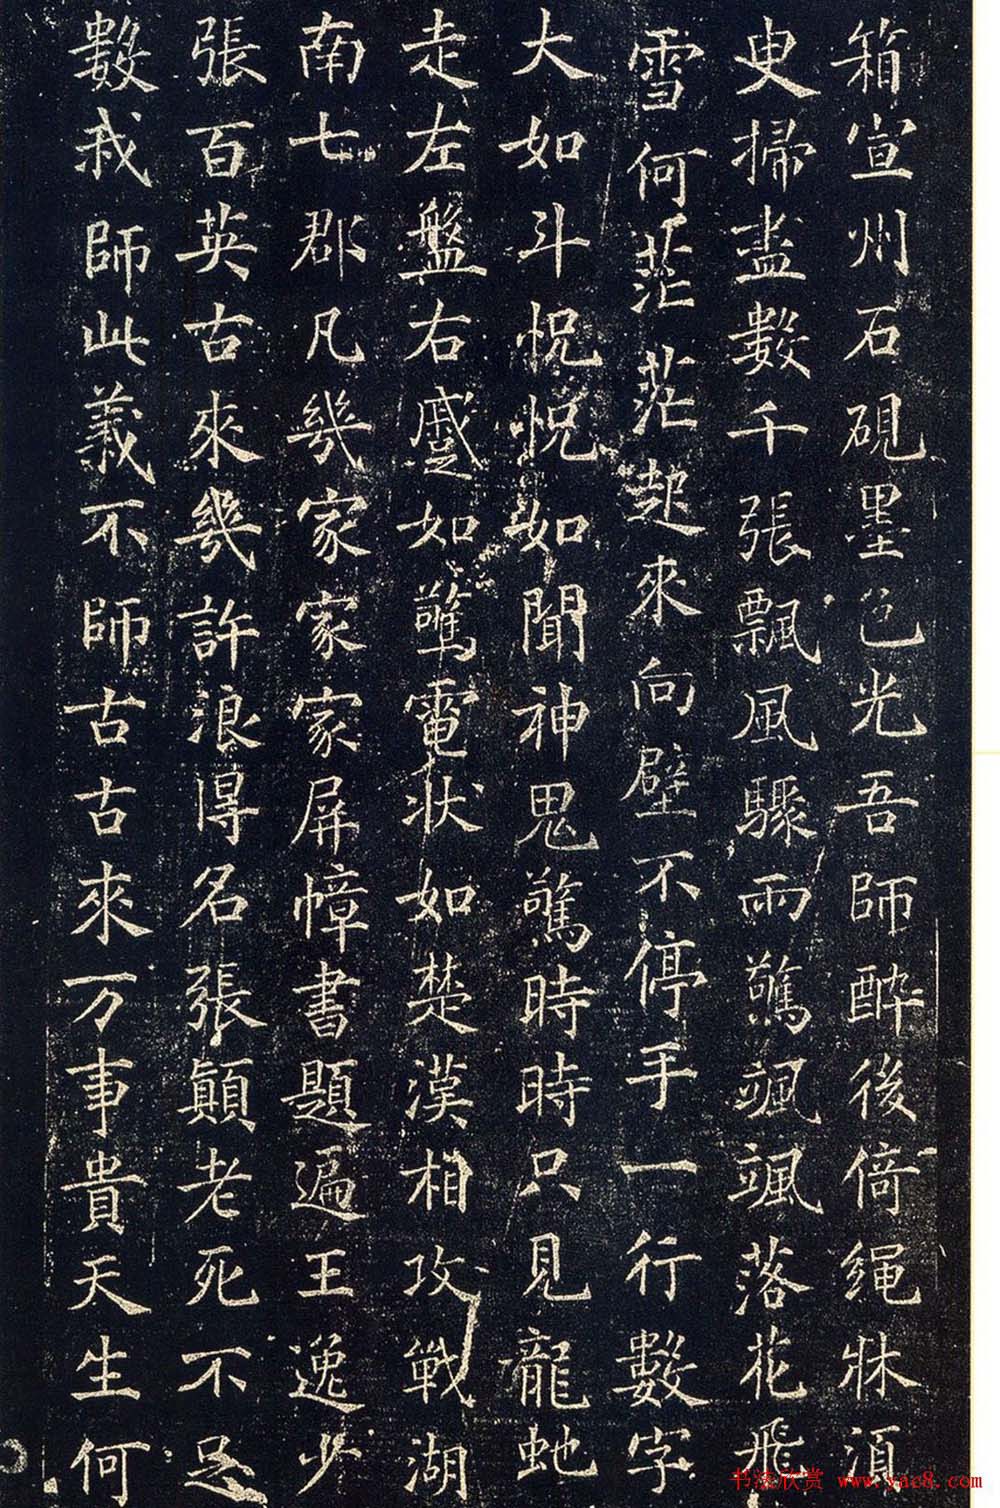 箱宣州石硯墨色光吾師醉後倚繩牀須
叟掃盡數千張飄風驟雨驚颯颯落花飛
雪何茫茫起來向壁不停手一行數字
大如斗怳怳如聞神鬼驚時時只見龍虵
走左盤右蹙如驚電狀如楚漢相攻戰湖
南七郡凡幾家家家屏幛書題遍王逸少
張百英古來幾許浪得名張顛老死不足
數我師此義不師古古來万事貴天生何
书法欣赏 www.yac8.com